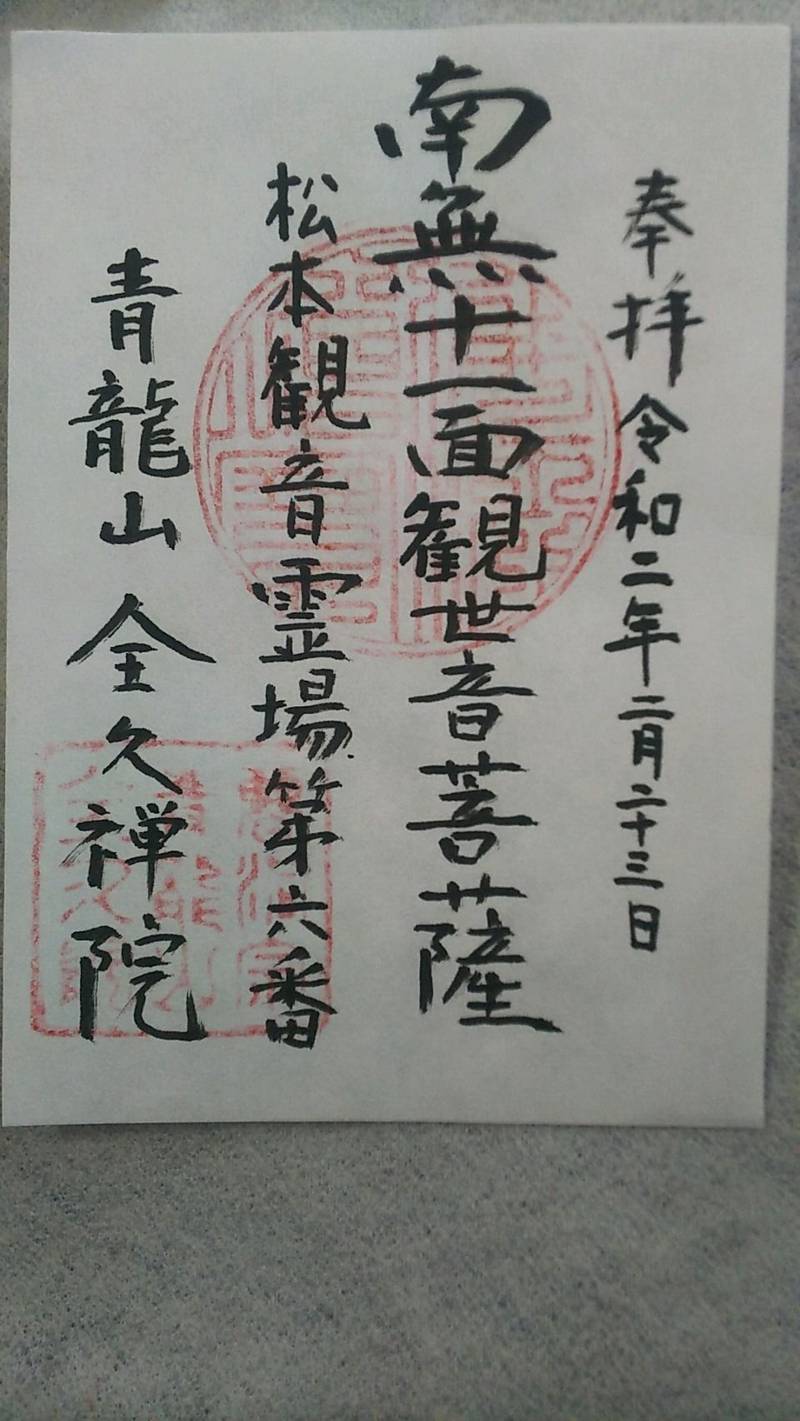 奉拝 令和二年二月二十三日
南無十一面観世音菩薩
松本観音霊場第六番
青龍山 全久禅院